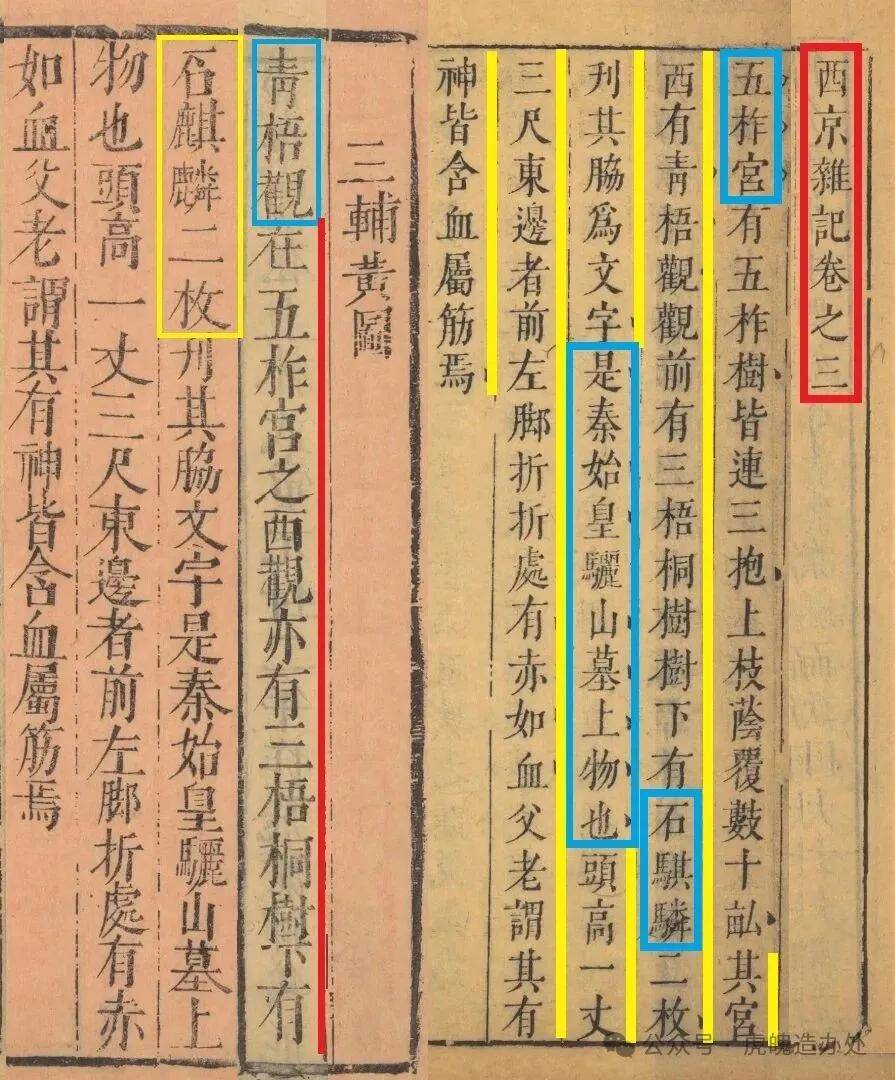 西京雜記卷之三
五柞宮有五柞樹皆連三抱上枝蔭覆數十畝其宮
西有青梧觀觀前有三梧桐樹樹下有石騏驎二枚
刋其脇爲文字是秦始皇驪山墓上物也頭高一丈
三尺東邊者前左脚折折處有赤如血父老謂其有
神皆含血屬筋焉
三輔黃圖
青梧觀在五柞宮之西觀亦有三梧桐樹下有
石麒麟二枚刋其脇文字是秦始皇驪山墓上
物也頭高一丈三尺東邊者前左脚折處有赤
如血父老謂其有神皆含血屬筋焉
公众号 · 虎魄造办处